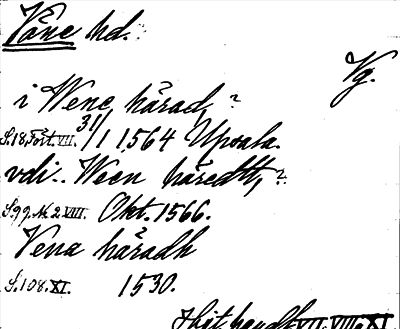 Våne hd.
Vg.
i Wene härad, ?
S.18, Fört. VII. 31/1 1564 Upsala.
vdi.. Ween häredtt, ?
S.99, N. 2. VIII. Okt. 1566.
Vena häradh
S.108. XI. 1530.
Hist. handl. VII, VIII o XI